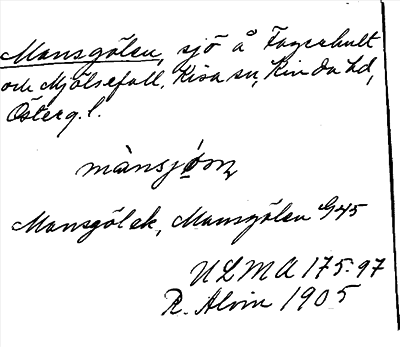 Mansgölen, sjö å Fagerhult
och Mjölsefall, Kisa sn, Kinda hd,
Österg.l.
Mansgöl ek, Mansgölen G45
ULMA 175:97
R. Alvin 1905